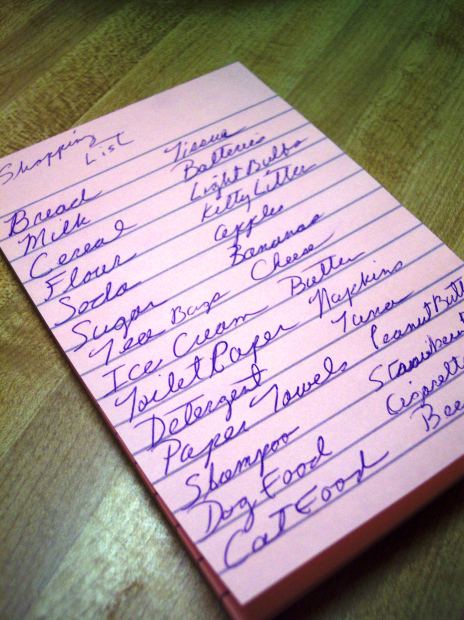 Shopping
List
Bread Tissue
Milk Batteries
Cereal Light Bulbs
Flour Kitty Litter
Soda apples
Sugar Bananas
Tea Bags Cheese
Ice Cream Butter
Toilet Paper Napkins
Detergent Tuna
Paper Towels Peanut Butt
Shampoo Strawberri
Dog Food Cigarette
Cat Food Bee